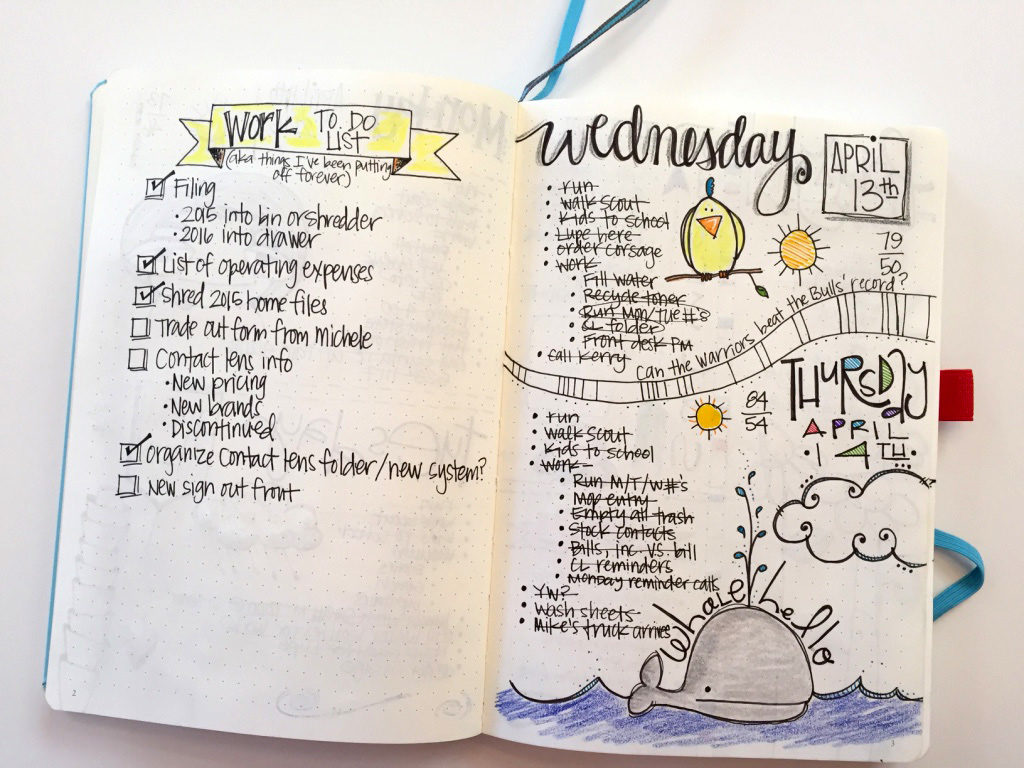 Work To. Do
List
(aka things I've been putting
off forever)
Filing
• 2015 into bin or shredder
• 2016 into drawer
List of operating expenses
Shred 2015 home files
Trade out form from michele
Contact lens info
• New pricing
• New brands
• Discontinued
Organize Contact lens folder/new system?
New sign out front
2
Wednesday
April
13th
• run
• walk scout
• Kids to school
• Lupe here
• order corsage
• work
• Fill water
• Recycle toner
• Run Mon/Tue #'s
• CL folder
• Front desk PM
• Call Kerry
79
50
Can the warriors beat the Bulls' record?
Thursday
April
• 14th •
84
54
• run
• walk scout
• Kids to school
• work
• Run M/T/W #'s
• Mop entry
• Empty all trash
• Stock contacts
• Bills, inc. vs. bill
• CL reminders
• Monday reminder calls
• YW?
• Wash sheets
• Mike's truck arrives
Whale hello
3